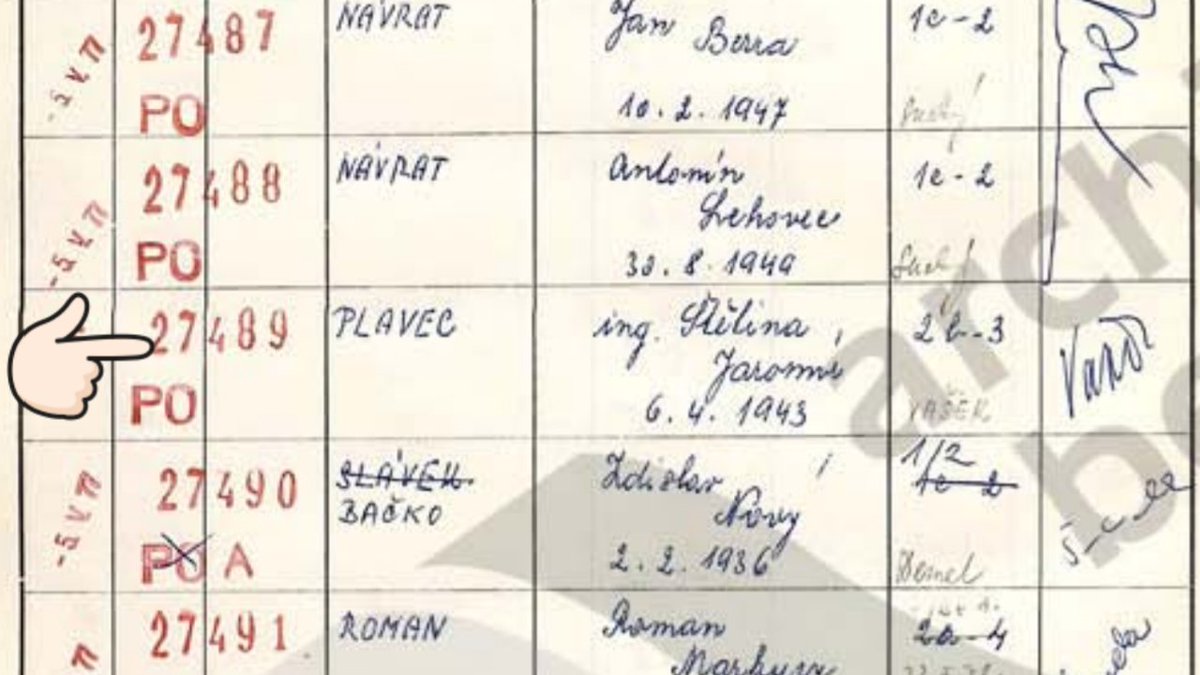 27487 NÁVRAT Jan Berra 1c-2
PO 10. 2. 1947
-5 VII
27488 NÁVRAT Antonín Lehovec 1c-2
PO 30. 8. 1949
-5 VII
27489 PLAVEC ing. Štětina, Jaromír 2b-3
PO 6. 4. 1943 VAŠEK
27490 SLÁVEK Zdislav Nový 1/2
BAČKO 1c-2
PO A 2. 2. 1936 Demel
-5 VII
27491 ROMAN Roman 2a-4
VII
arch